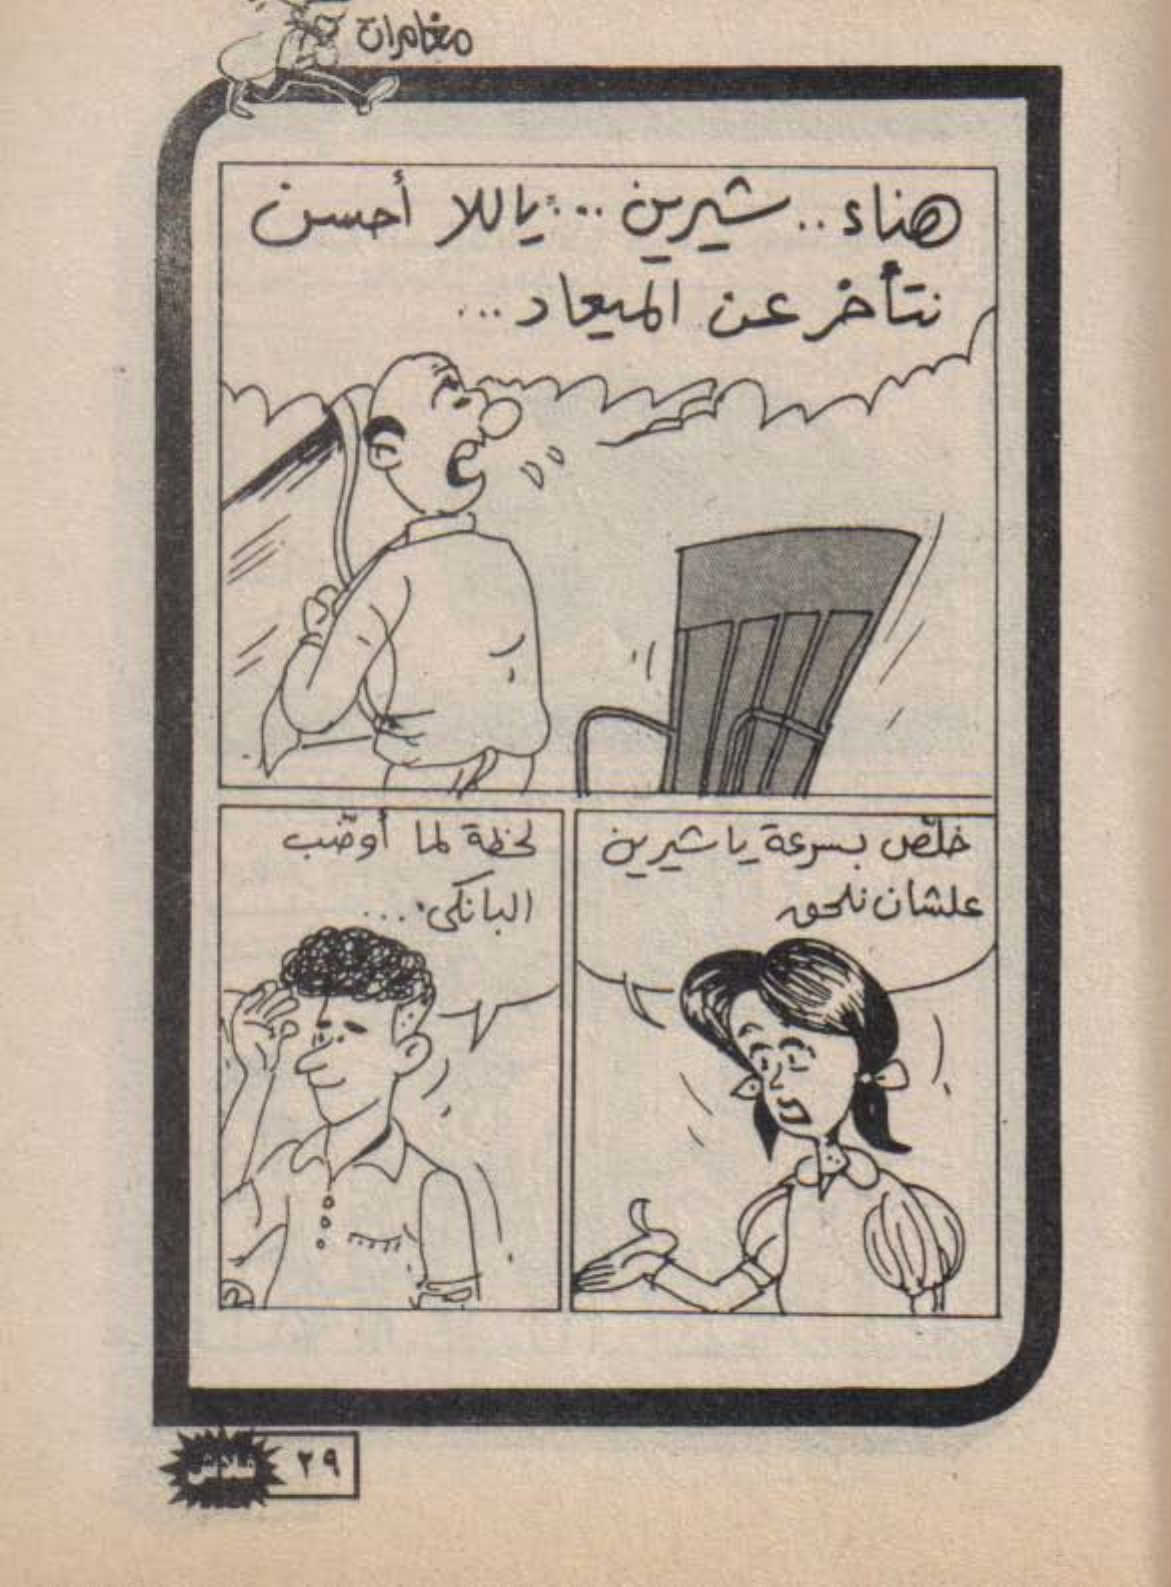 مغامرات
هناء.. شيرين... ياللا أحسن
نتأخر عن الميعاد...
خلّص بسرعة يا شيرين
علشان نلحق
لحظة لما أوضّب
البانكى...
٢٩
فلاش